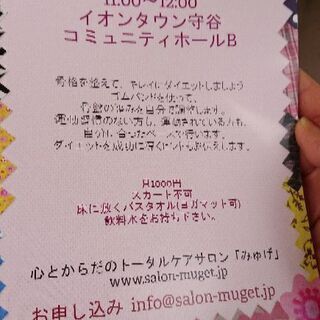 11:00～12:00
イオンタウン守谷
コミュニティホールB
骨格を整えて、キレイにダイエットしましょう
ゴムバンドを使って、
骨盤の歪みを自分で調整します。
運動習慣のない方も、運動されている方も、
自分に合ったペースで行います。
ダイエットを成功に導くヒントもお伝えします。
1000円
スカート不可
床に敷くバスタオル(ヨガマット可)
飲料水をお持ち下さい。
心とからだのトータルケアサロン「みゅげ」
www.salon-muget.jp
お申し込み info@salon-muget.jp